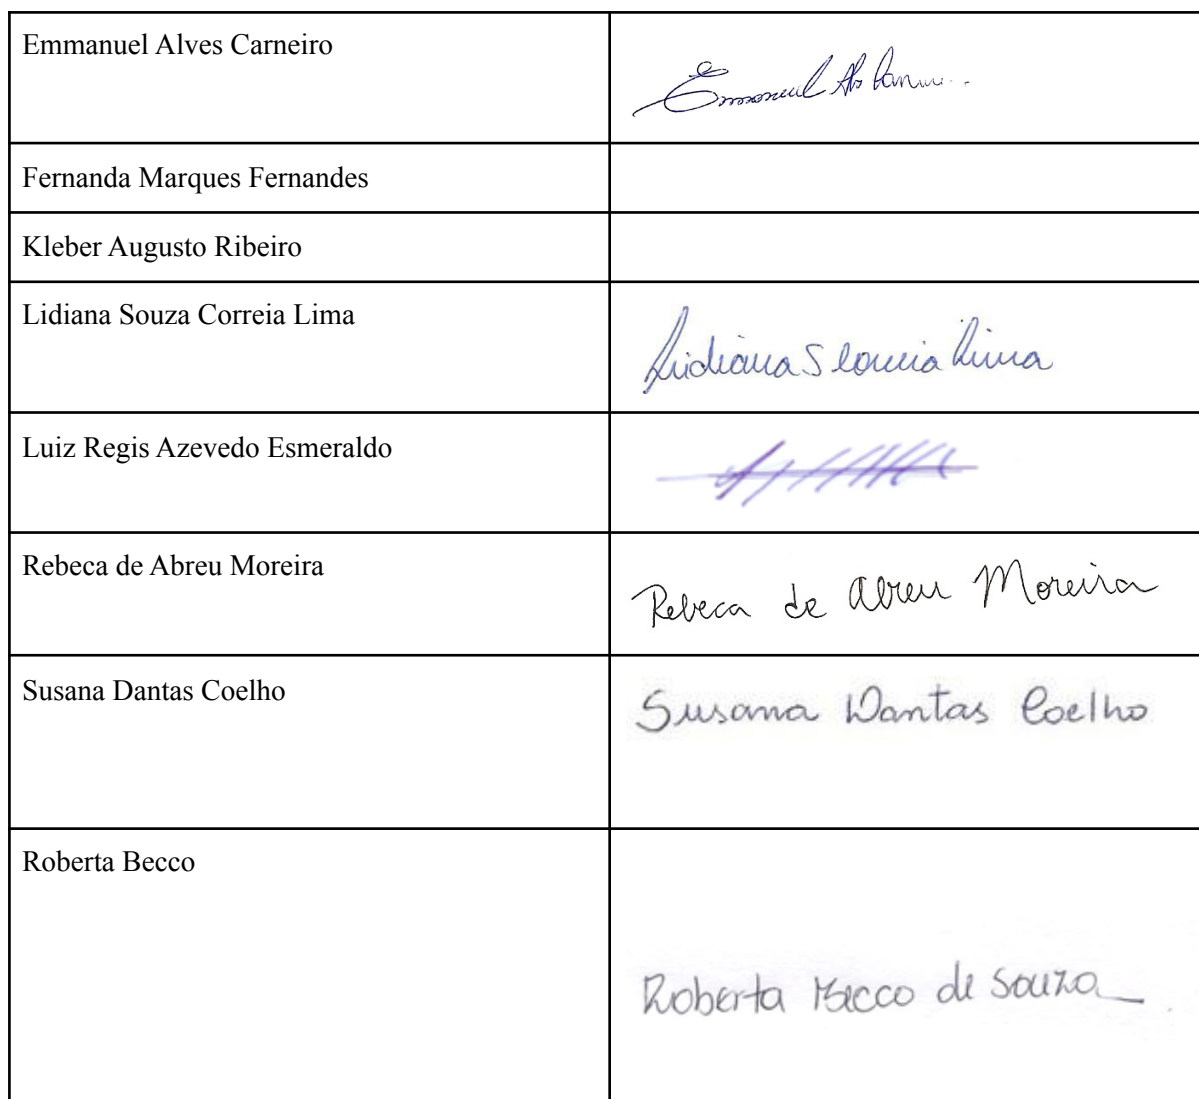 Emmanuel Alves Carneiro
Emmanuel
Fernanda Marques Fernandes
Kleber Augusto Ribeiro
Lidiana Souza Correia Lima
Lidiana S Correia Lima
Luiz Regis Azevedo Esmeraldo
Rebeca de Abreu Moreira
Rebeca de Abreu Moreira
Susana Dantas Coelho
Susana Dantas Coelho
Roberta Becco
Roberta Becco de Souza